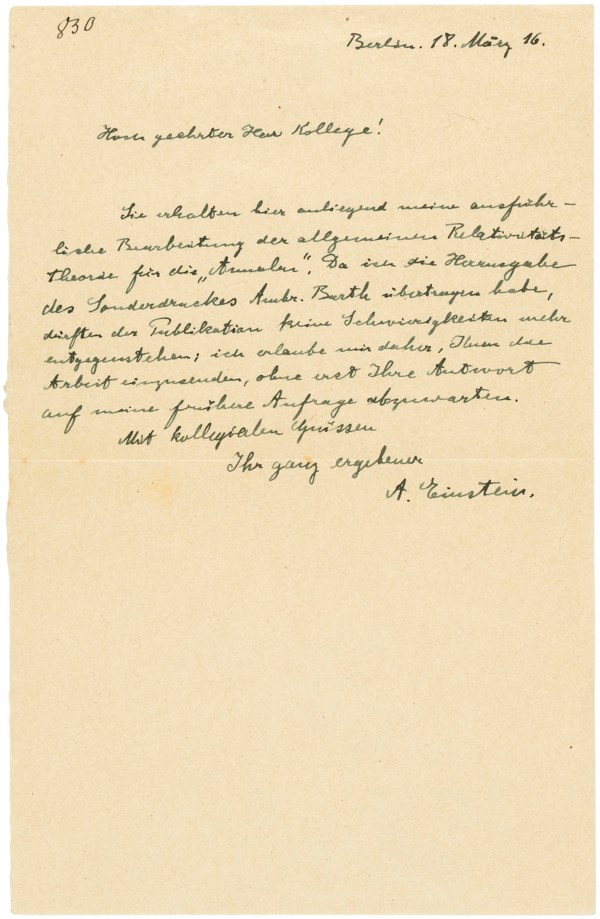 830
Berlin. 18. März 16.
Hoch geehrter Herr Kollege!
Sie erhalten hier anliegend meine ausführ-
liche Bearbeitung der allgemeinen Relativitäts-
theorie für die „Annalen". Da ich die Herausgabe
des Sonderdruckes Ambr. Barth übertragen habe,
dürften der Publikation keine Schwierigkeiten mehr
entgegenstehen; ich erlaube mir daher, Ihnen die
Arbeit einzusenden, ohne erst Ihre Antwort
auf meine frühere Anfrage abzuwarten.
Mit kollegialen Grüssen
Ihr ganz ergebener
A. Einstein.